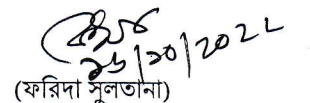 ১৬/১০/২০২২
(ফরিদা সুলতানা)